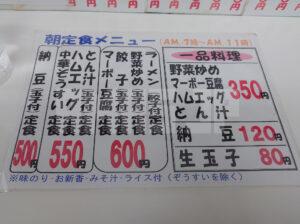 朝定食メニュー
(AM.7時〜AM.11時)
ラーメン定食
餃子(玉子付)定食
マーボー豆腐定食
600円
とん汁(玉子付)定食
ハムエッグ定食
中華ぞうすい(玉子付)
550円
納豆(玉子付)定食
500円
一品料理
野菜炒め
マーボー豆腐
ハムエッグ
とん汁
350円
納豆 120円
生玉子 80円
※味のり・お新香・みそ汁・ライス付(ぞうすいを除く)